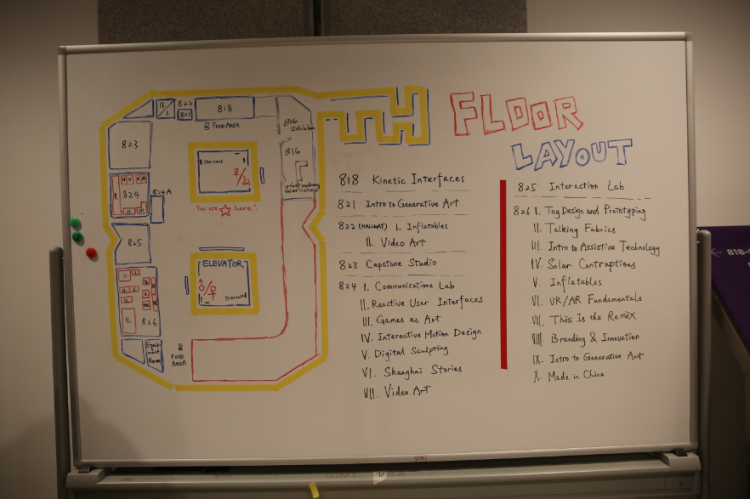 FLOOR
LAYOUT
822
821
818
FOOD AREA
816
823
824
824A
You are here!
825
ELEVATOR
826
FOOD
AREA
818 Kinetic Interfaces
821 Intro to Generative Art
822 (HALLWAY) I. Inflatables
II. Video Art
823 Capstone Studio
824 I. Communications Lab
II. Reactive User Interfaces
III. Games as Art
IV. Interactive Motion Design
V. Digital Sculpting
VI. Shanghai Stories
VII. Video Art
825 Interaction Lab
826 I. Toy Design and Prototyping
II. Talking Fabrics
III. Intro to Assistive Technology
IV. Solar Contraptions
V. Inflatables
VI. VR/AR Fundamentals
VII. This Is the Remix
VIII. Branding & Innovation
IX. Intro to Generative Art
X. Made in China